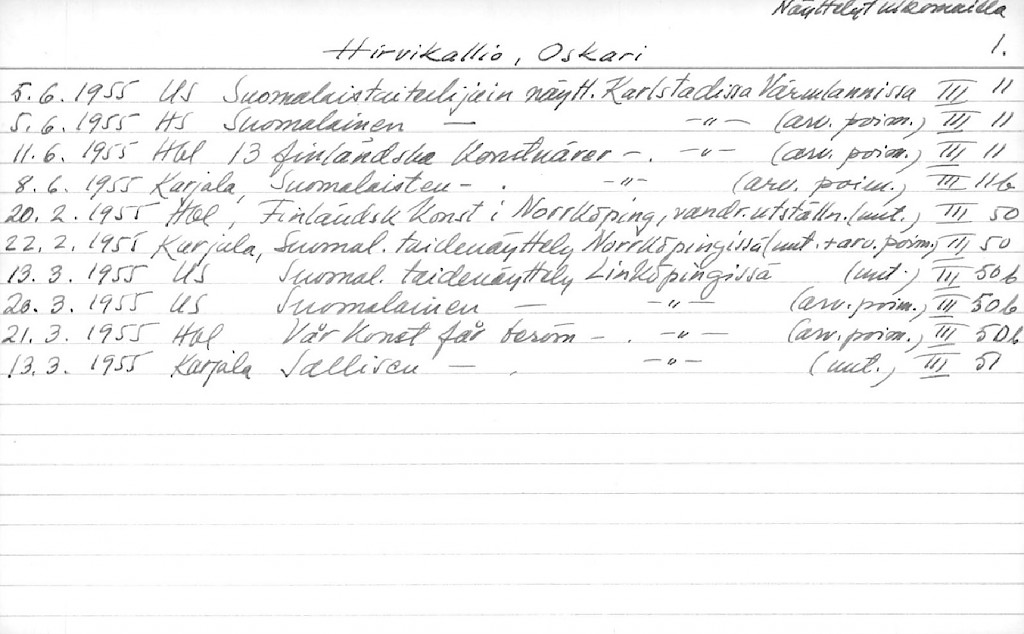 Näyttelyt ulkomailla
Hirvikallio, Oskari 1.
5.6.1955 US Suomalaistaiteilijain näytt. Karlstadissa Värmlannissa III 11
5.6.1955 HS Suomalainen — -"- (arv. poim.) III 11
11.6.1955 Hbl 13 finländska konstnärer -. -"- (arv. poim.) III 11
8.6.1955 Karjala, Suomalaisten -. -"- (arv. poim.) III 11b
20.2.1955 Hbl, Finländsk Konst i Norrköping, vandr.utställn. (uut.) III 50
22.2.1955 Karjala, Suomal. taidenäyttely Norrköpingissä (uut. + arv. poim.) III 50
13.3.1955 US Suomal. taidenäyttely Linköpingissä (uut.) III 50b
20.3.1955 US Suomalainen — -"- (arv. poim.) III 50b
21.3.1955 Hbl Vår Konst får beröm -. -"- (arv. poim.) III 50b
13.3.1955 Karjala Sallisen — . -"- (uut.) III 51